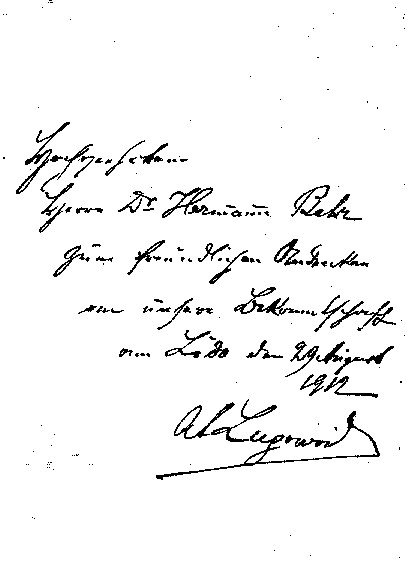 Hochverehrten
Herrn Dr Hermann Bahr
zum freundlichen Andenken
an unsere Bekanntschaft
am Lido den 29 August
1912